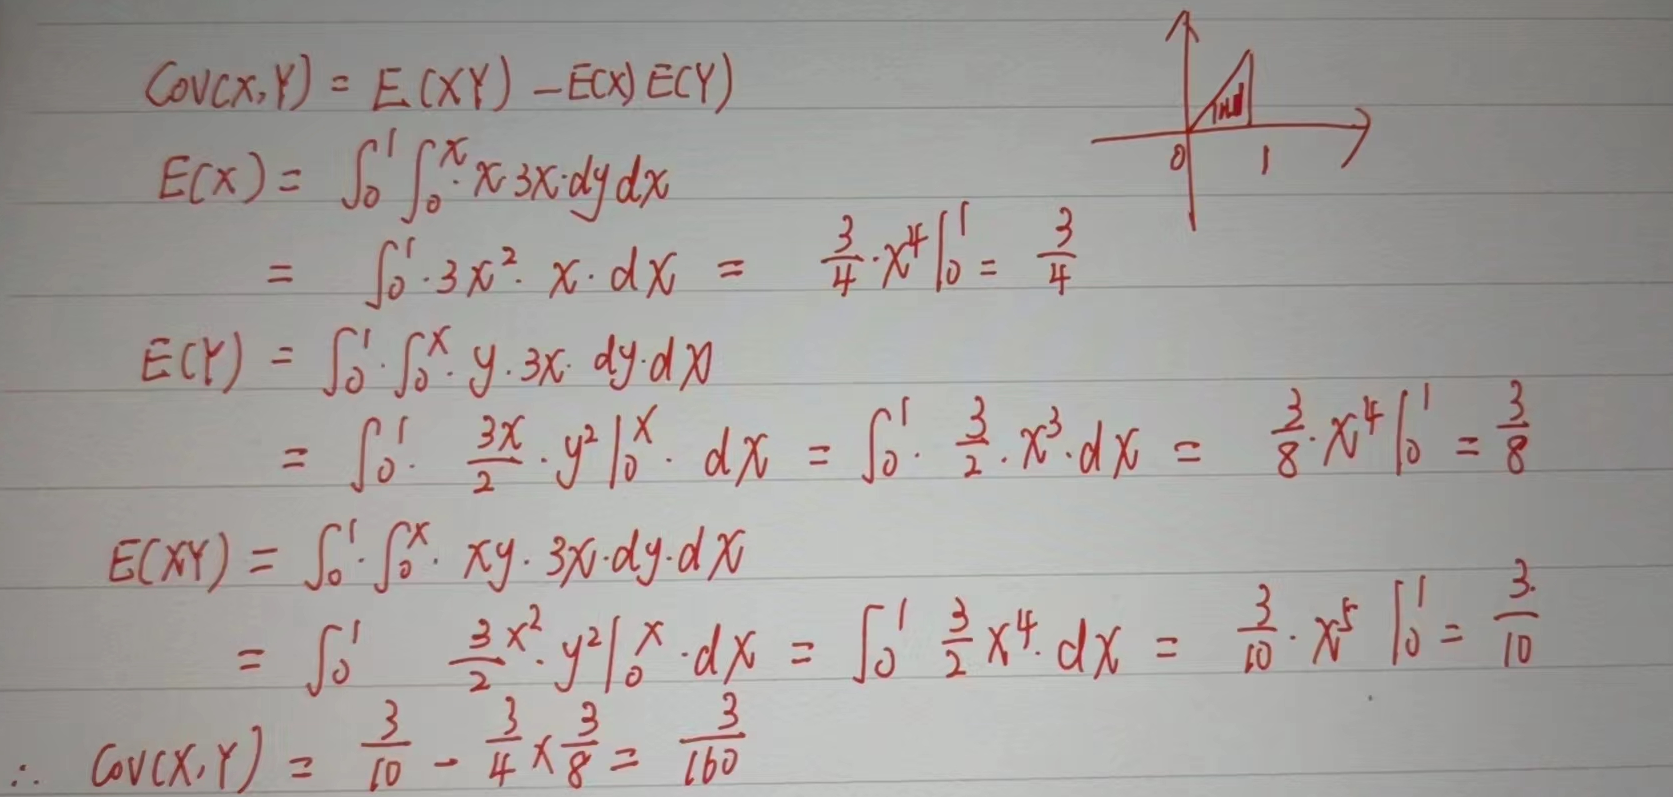 Cov(X,Y) = E(XY) - E(X)E(Y)
0 1
E(X) = ∫₀¹ ∫₀ˣ · x 3x · dy dx
= ∫₀¹ · 3x² · x · dx = 3/4 · x⁴ |₀¹ = 3/4
E(Y) = ∫₀¹ · ∫₀ˣ · y · 3x · dy · dx
= ∫₀¹ · 3x/2 · y² |₀ˣ · dx = ∫₀¹ · 3/2 · x³ · dx = 3/8 · x⁴ |₀¹ = 3/8
E(XY) = ∫₀¹ · ∫₀ˣ · xy · 3x · dy · dx
= ∫₀¹ 3/2 x² · y² |₀ˣ · dx = ∫₀¹ 3/2 x⁴ · dx = 3/10 · x⁵ |₀¹ = 3/10
∴ Cov(X,Y) = 3/10 - 3/4 × 3/8 = 3/160